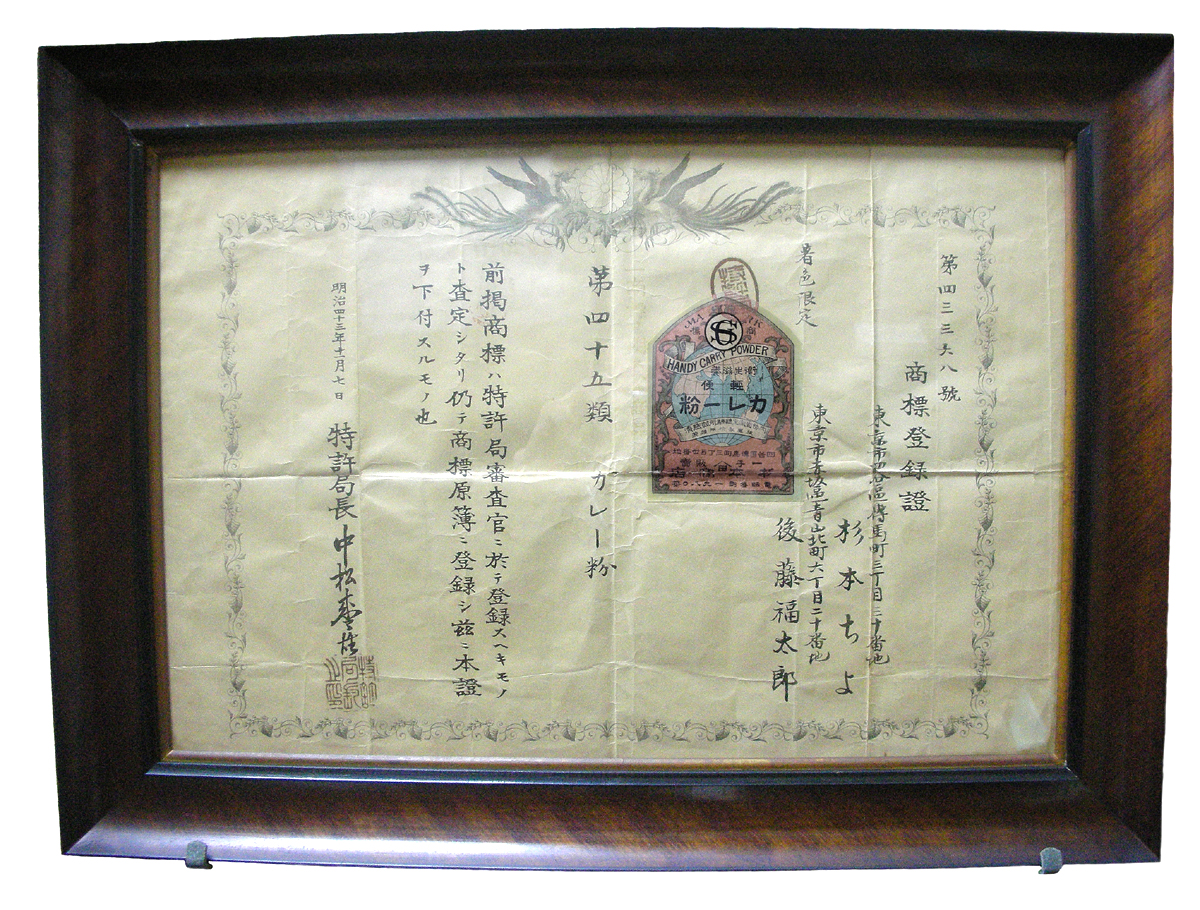 第四三三六八號
商標登録證
東京市四谷區傳馬町三丁目三十番地
杉本ちよ
東京市赤坂區青山北町六丁目二十番地
後藤福太郎
着色限定
HANDY CARRY POWDER
輕便
カレー粉
第四十五類 カレー粉
前掲商標ハ特許局審査官ニ於テ登録スヘキモノ
ト査定シタリ仍テ商標原簿ニ登録シ茲ニ本證
ヲ下付スルモノ也
明治四十三年十一月七日
特許局長 中松盛雄